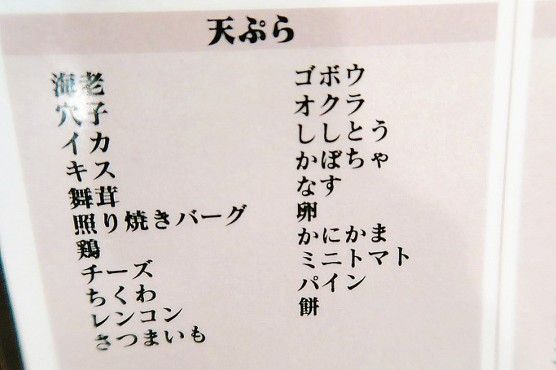 天ぷら
海老
穴子
イカ
キス
舞茸
照り焼きバーグ
鶏
チーズ
ちくわ
レンコン
さつまいも
ゴボウ
オクラ
ししとう
かぼちゃ
なす
卵
かにかま
ミニトマト
パイン
餅